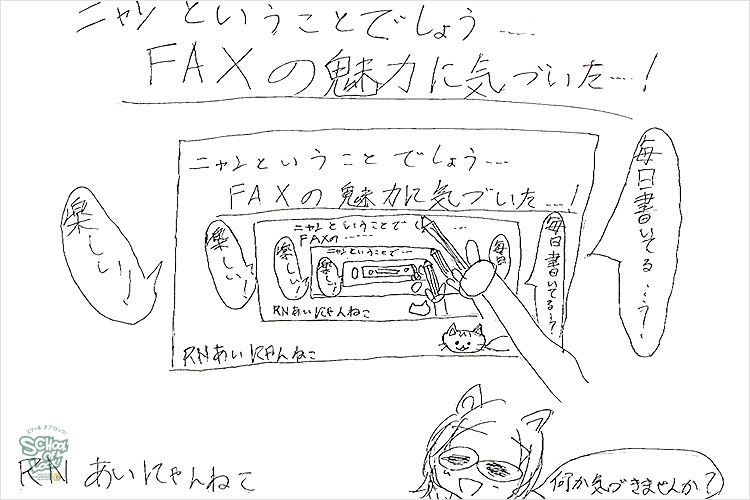 ニャンということでしょう……
FAXの魅力に気づいた……!
ニャンということでしょう……
FAXの魅力に気づいた……!
毎日書いてる…う!
楽しい!
楽しい!
毎日書いてる…う?
ニャンということでし ……
FAXの……
楽しい!
毎日
ニャンということで……
楽しい!
RNあいにゃんねこ
RNあいにゃんねこ
スクールオブロック!
SCHOOL OF LOCK!
RN あいにゃんねこ
何か気づきませんか?